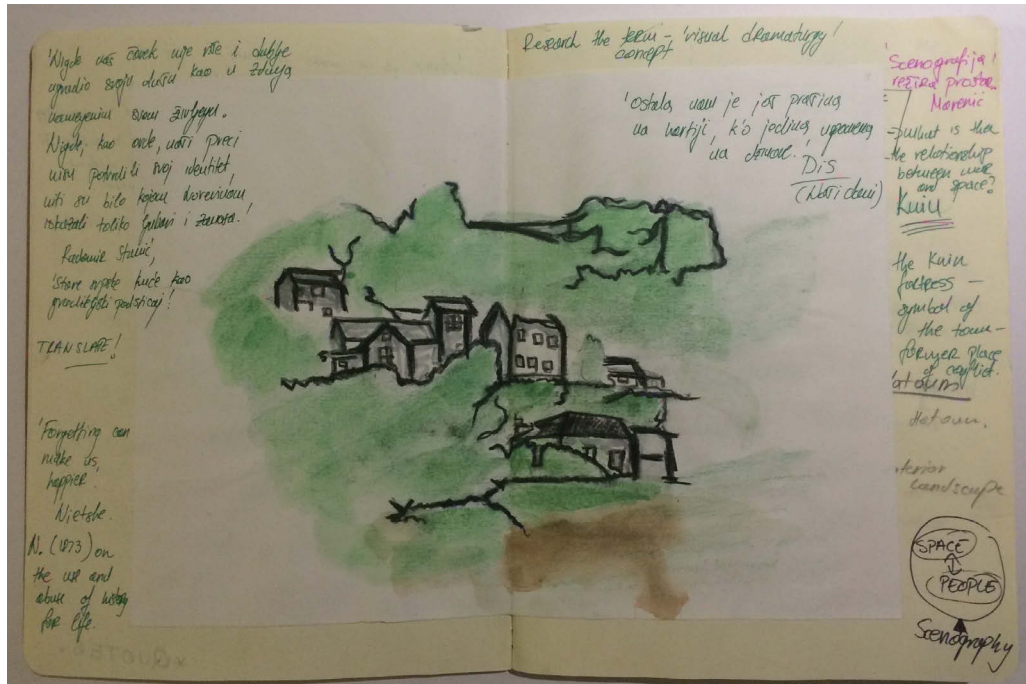 'Nigde naš čovek nije više i dublje
ugradio svoju dušu kao u zdanja
namenjena svom življenju.
Nigde, kao ovde, naši preci
nisu potvrdili svoj identitet,
niti su bilo kojim tvorevinama
iskazali toliko ljubavi i zanosa.'
Radomir Stanić,
'Stare srpske kuće kao
graditeljski podsticaj'
TRANSLATE!
'Forgetting can
make us
happier'
Nietshe.
N. (1873) on
the use and
abuse of history
for life.
QUOTES
Research the term – 'visual dramaturgy'
concept
'Ostala nam je još prašina
na hartiji, k'o jedina uspomena
na
DIS
(Naši dani)
'Scenografija'
režira prostor.
Marenić
– what is then
the relationship
between war
and space?
Knin
the Knin
fortress –
symbol of
the town –
former place
of conflict.
Hatoum.
terior
Landscape
SPACE
PEOPLE
Scenography